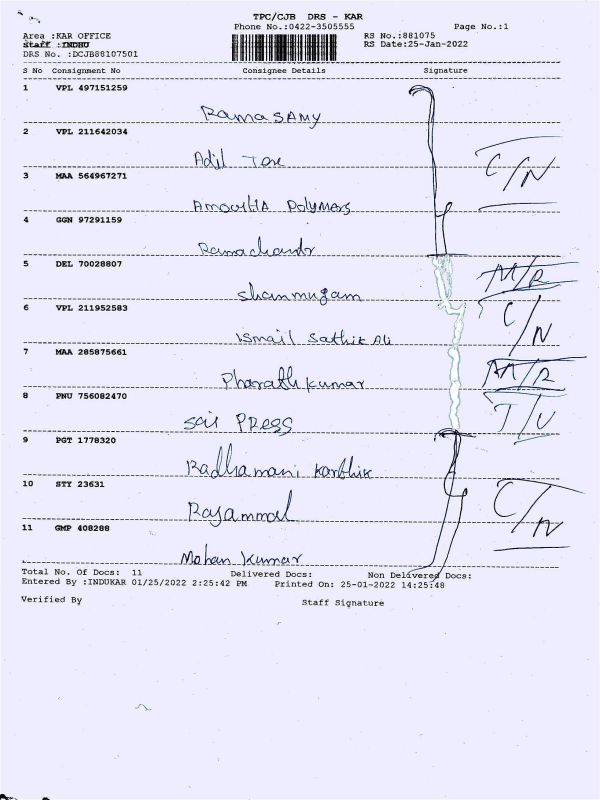 TPC/CJB DRS - KAR
Phone No.:0422-3505555 Page No.:1
Area :KAR OFFICE RS No.:881075
Staff :INDHU RS Date:25-Jan-2022
DRS No. :DCJB88107501
S No Consignment No Consignee Details Signature
1 VPL 497151259
RamaSAMY
2 VPL 211642034
Adil Tore
C/N
3 MAA 564967271
Polymers
4 GGN 97291159
Ramachandr
5 DEL 70028807
Shanmugam
6 VPL 211952583
C/N
Ismail Sathik Ali
7 MAA 285875661
Pharath Kumar
8 PNU 756082470
Sai PRESS
9 PGT 1778320
Radhamani Karthik
10 STY 23631
C/N
Rajammal
11 GMP 408288
Mohan Kumar
Total No. Of Docs: 11 Delivered Docs: Non Delivered Docs:
Entered By :INDUKAR 01/25/2022 2:25:42 PM Printed On: 25-01-2022 14:25:48
Verified By Staff Signature